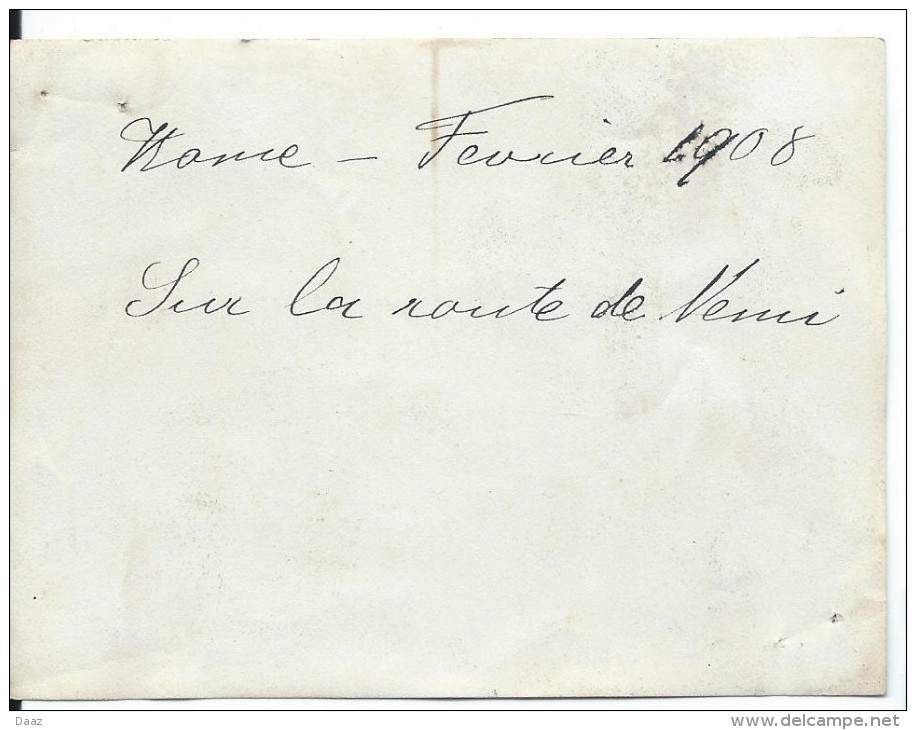 Rome - Fevrier 1908
Sur la route de Nemi
Daaz
delcampe.net